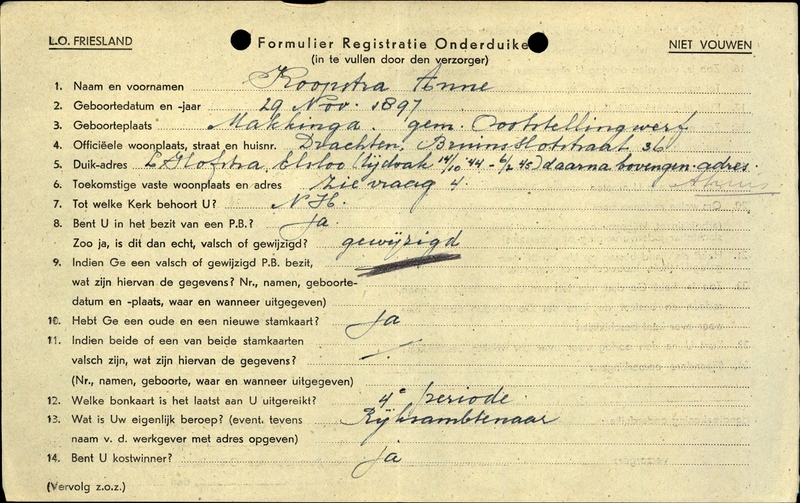 L.O. FRIESLAND
Formulier Registratie Onderduike
NIET VOUWEN
(in te vullen door den verzorger)
1. Naam en voornamen Koopstra Anne
2. Geboortedatum en -jaar 29 Nov. 1897
3. Geboorteplaats Makkinga. gem. Ooststellingwerf
4. Officiëele woonplaats, straat en huisnr. Drachten, Bruins Slotstraat 36
5. Duik-adres Hofstra, Elsloo (tijdvak 14/10 '44 - 6/2 45) daarna bovengen. adres
6. Toekomstige vaste woonplaats en adres Zie vraag 4.
7. Tot welke Kerk behoort U? N.H.
8. Bent U in het bezit van een P.B.? Ja
Zoo ja, is dit dan echt, valsch of gewijzigd? gewijzigd
9. Indien Ge een valsch of gewijzigd P.B. bezit,
wat zijn hiervan de gegevens? Nr., namen, geboorte-
datum en -plaats, waar en wanneer uitgegeven)
10. Hebt Ge een oude en een nieuwe stamkaart? Ja
11. Indien beide of een van beide stamkaarten
valsch zijn, wat zijn hiervan de gegevens?
(Nr., namen, geboorte, waar en wanneer uitgegeven)
12. Welke bonkaart is het laatst aan U uitgereikt? 4e periode
13. Wat is Uw eigenlijk beroep? (event. tevens Rijksambtenaar
naam v. d. werkgever met adres opgeven)
14. Bent U kostwinner? ja
(Vervolg z.o.z.)